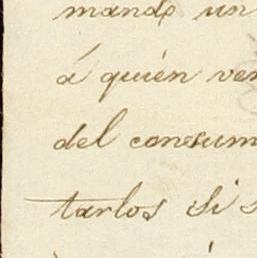 mando un
á quién ven
del consum
tarlos si s